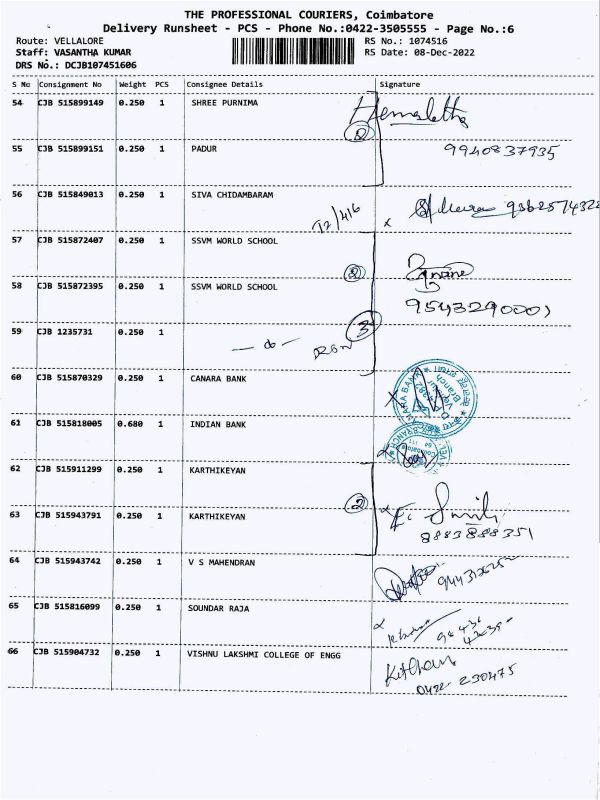 THE PROFESSIONAL COURIERS, Coimbatore
Delivery Runsheet - PCS - Phone No.:0422-3505555 - Page No.:6
Route: VELLALORE RS No.: 1074516
Staff: VASANTHA KUMAR RS Date: 08-Dec-2022
DRS No.: DCJB107451606
S No Consignment No Weight PCS Consignee Details Signature
54 CJB 515899149 0.250 1 SHREE PURNIMA Hemalatha
2
55 CJB 515899151 0.250 1 PADUR 9940837935
56 CJB 515849013 0.250 1 SIVA CHIDAMBARAM
12/416 x
57 CJB 515872407 0.250 1 SSVM WORLD SCHOOL
2
58 CJB 515872395 0.250 1 SSVM WORLD SCHOOL 9543290001
59 CJB 1235731 0.250 1 3
— do —
60 CJB 515870329 0.250 1 CANARA BANK
61 CJB 515818005 0.680 1 INDIAN BANK
62 CJB 515911299 0.250 1 KARTHIKEYAN
2
63 CJB 515943791 0.250 1 KARTHIKEYAN
8883888351
64 CJB 515943742 0.250 1 V S MAHENDRAN
65 CJB 515816099 0.250 1 SOUNDAR RAJA
66 CJB 515904732 0.250 1 VISHNU LAKSHMI COLLEGE OF ENGG
0422 230475